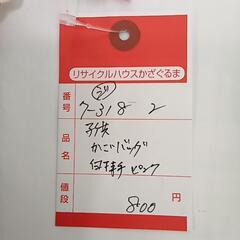 リサイクルハウスかざぐるま
番号
7-318 2
品名
子供
かごバッグ
白持手 ピンク
値段
800 円